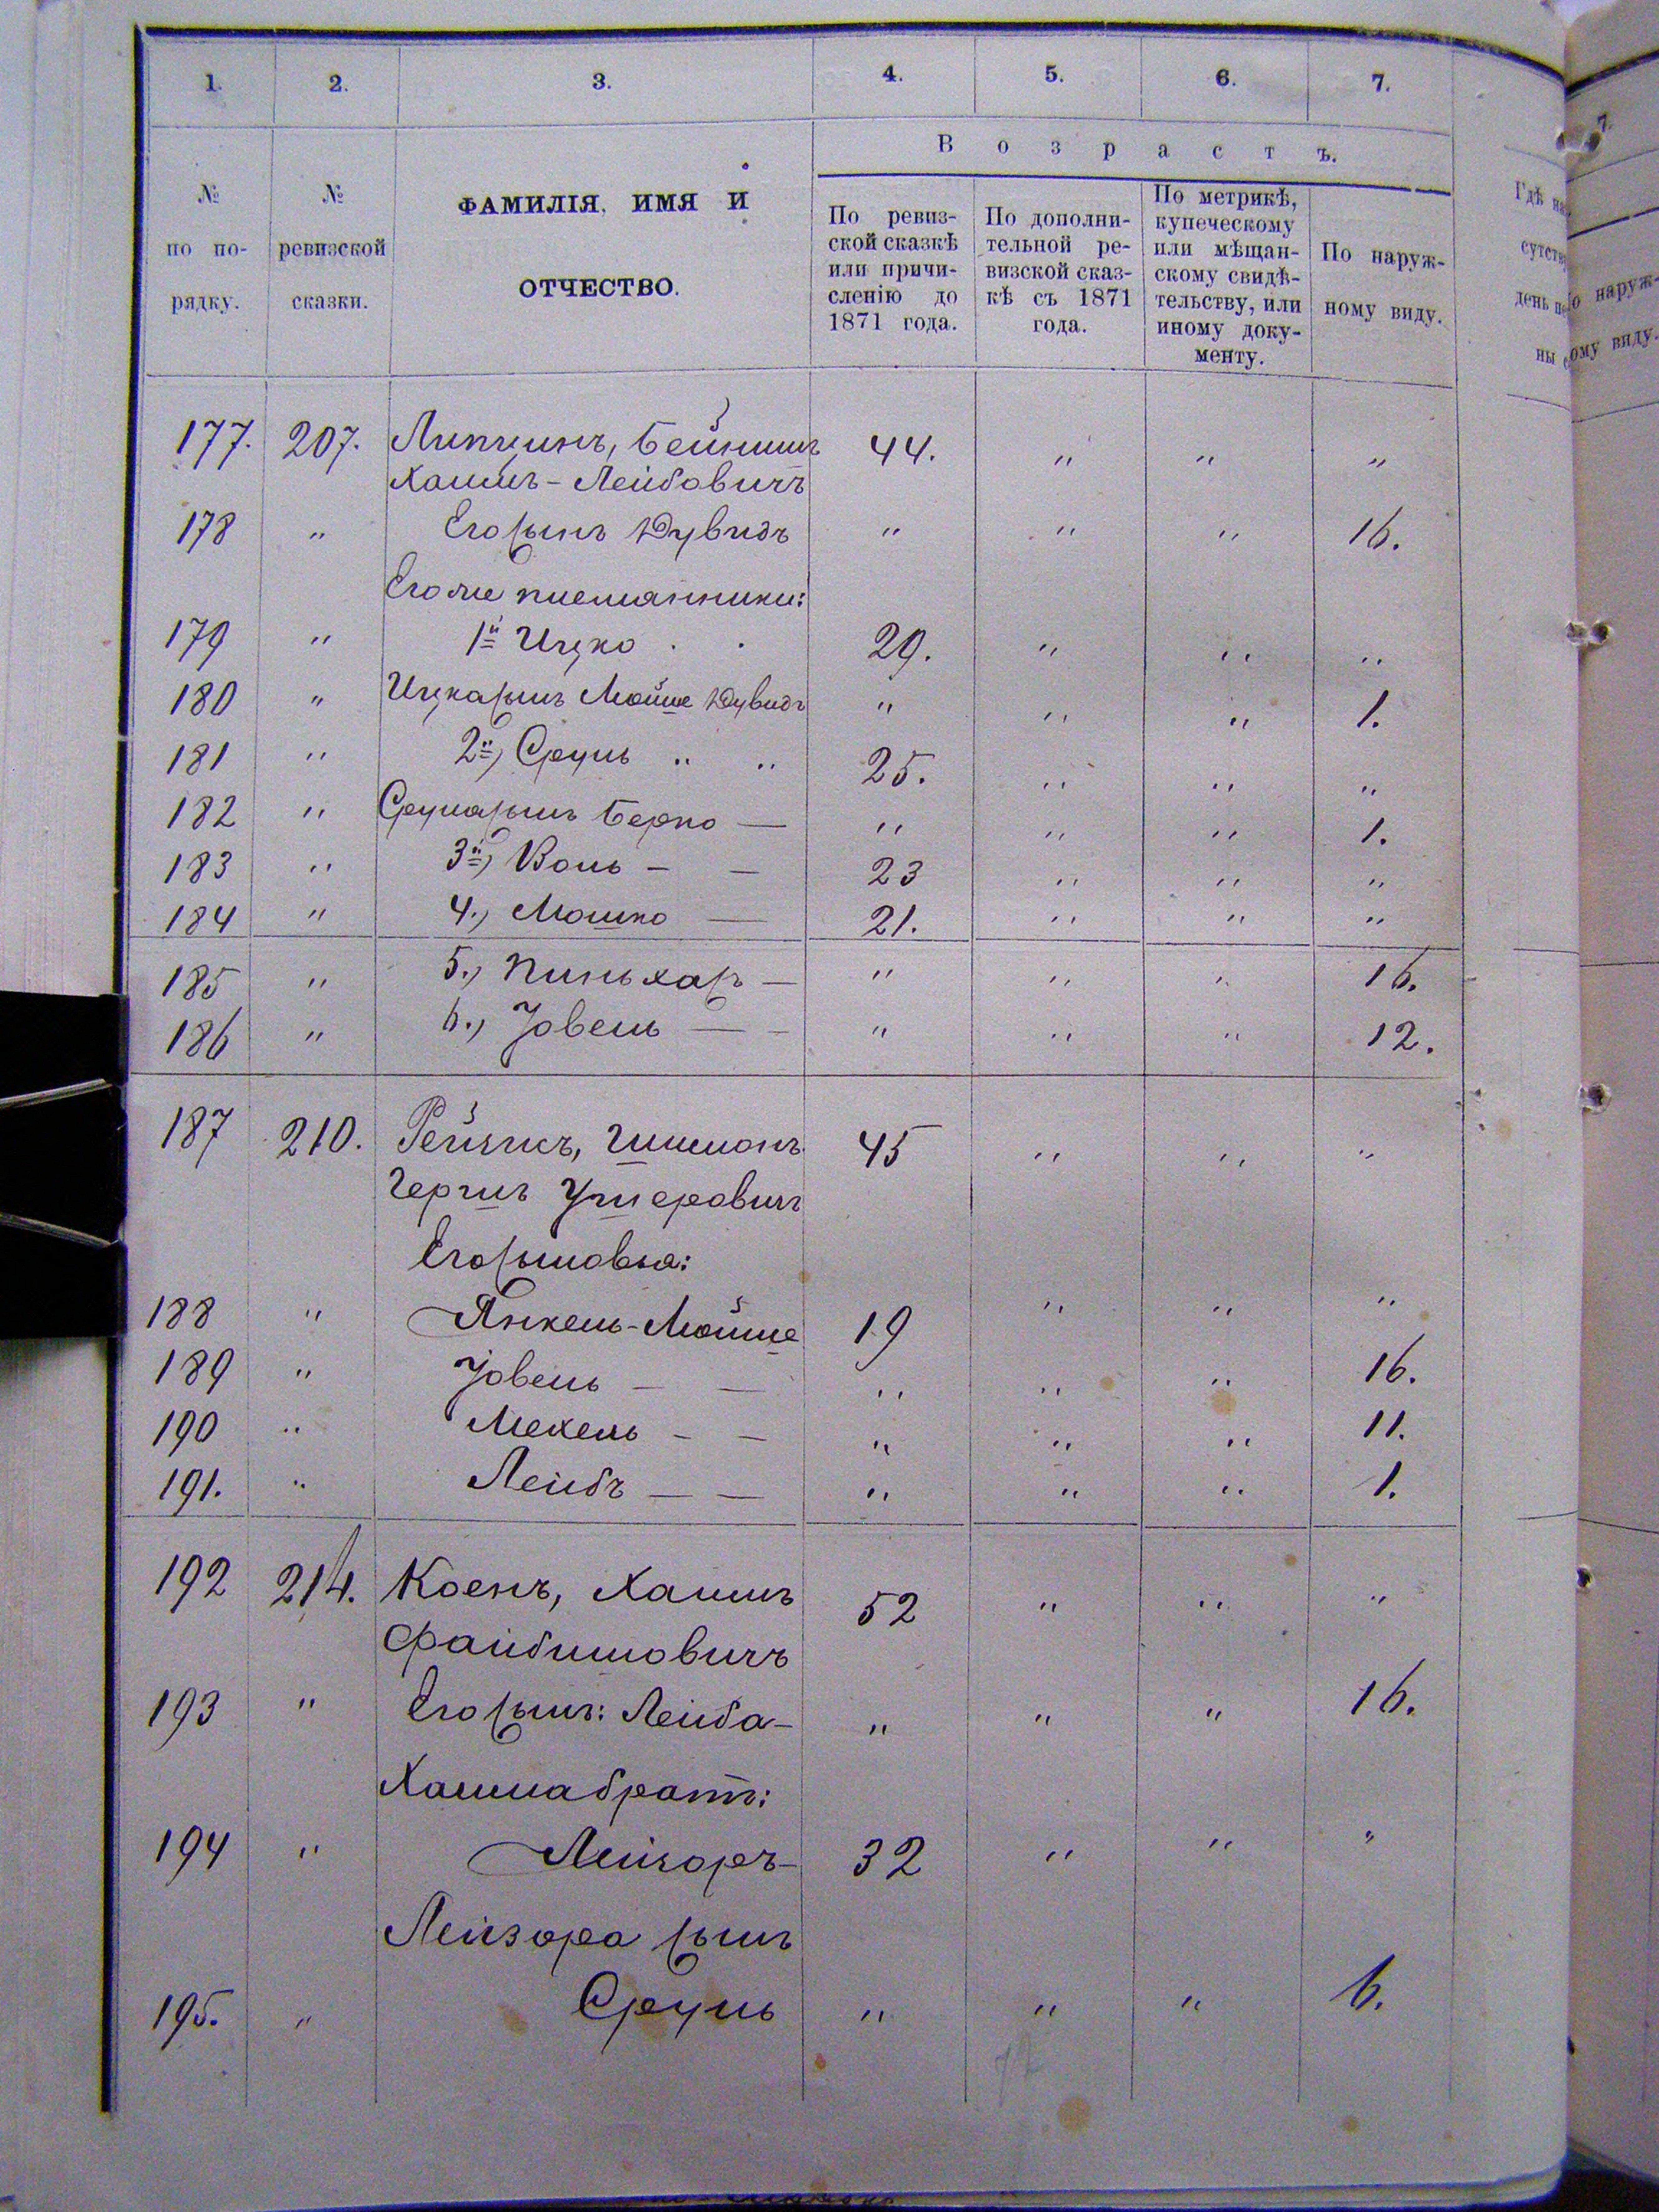 1. 2. 3. 4. 5. 6. 7.
В о з р а с т ъ.
№ по по-рядку.
№ ревизской сказки.
ФАМИЛІЯ, ИМЯ И
ОТЧЕСТВО.
По ревиз-
ской сказкѣ
или причи-
сленію до
1871 года.
По дополни-
тельной ре-
визской сказ-
кѣ съ 1871
года.
По метрикѣ,
купеческому
или мѣщан-
скому свидѣ-
тельству, или
иному доку-
менту.
По наруж-
ному виду.
177. 207. Липкинъ, Бейнишъ 44. " " "
Хаимъ-Лейбовичъ
178 " Его сынъ Дувидъ " " " 16.
Его же племянники:
179 " 1й Ицко . . 29. " " "
180 " Ицка сынъ Мойше Дувидъ " " " 1.
181 " 2й) Сруль " " 25. " " "
182 " Сруля сынъ Берко — " " " 1.
183 " 3й) Воль — — 23 " " "
184 " 4.) Мошко — 21. " " "
185 " 5.) Пиньхас — " " " 16.
186 " 6.) Іовель — — " " " 12.
187 210. Рейчикъ, Шимонъ 45 " " "
Гершъ Ушеровичъ
Его сыновья:
188 " Янкель-Мойше 19 " " "
189 " Іовель — — " " " 16.
190 " Мехель — — " " " 11.
191. " Лейбъ — — " " " 1.
192 214. Коенъ, Хаимъ 52 " " "
Файбишовичъ
193 " Его сынъ: Лейба — " " " 16.
Хаима братъ:
194 " Лейзоръ — 32 " " "
Лейзора сынъ
195. " Сруль " " " 6.
Гдѣ на
сутств
день п
ны с
7.
о наруж-
ому виду.